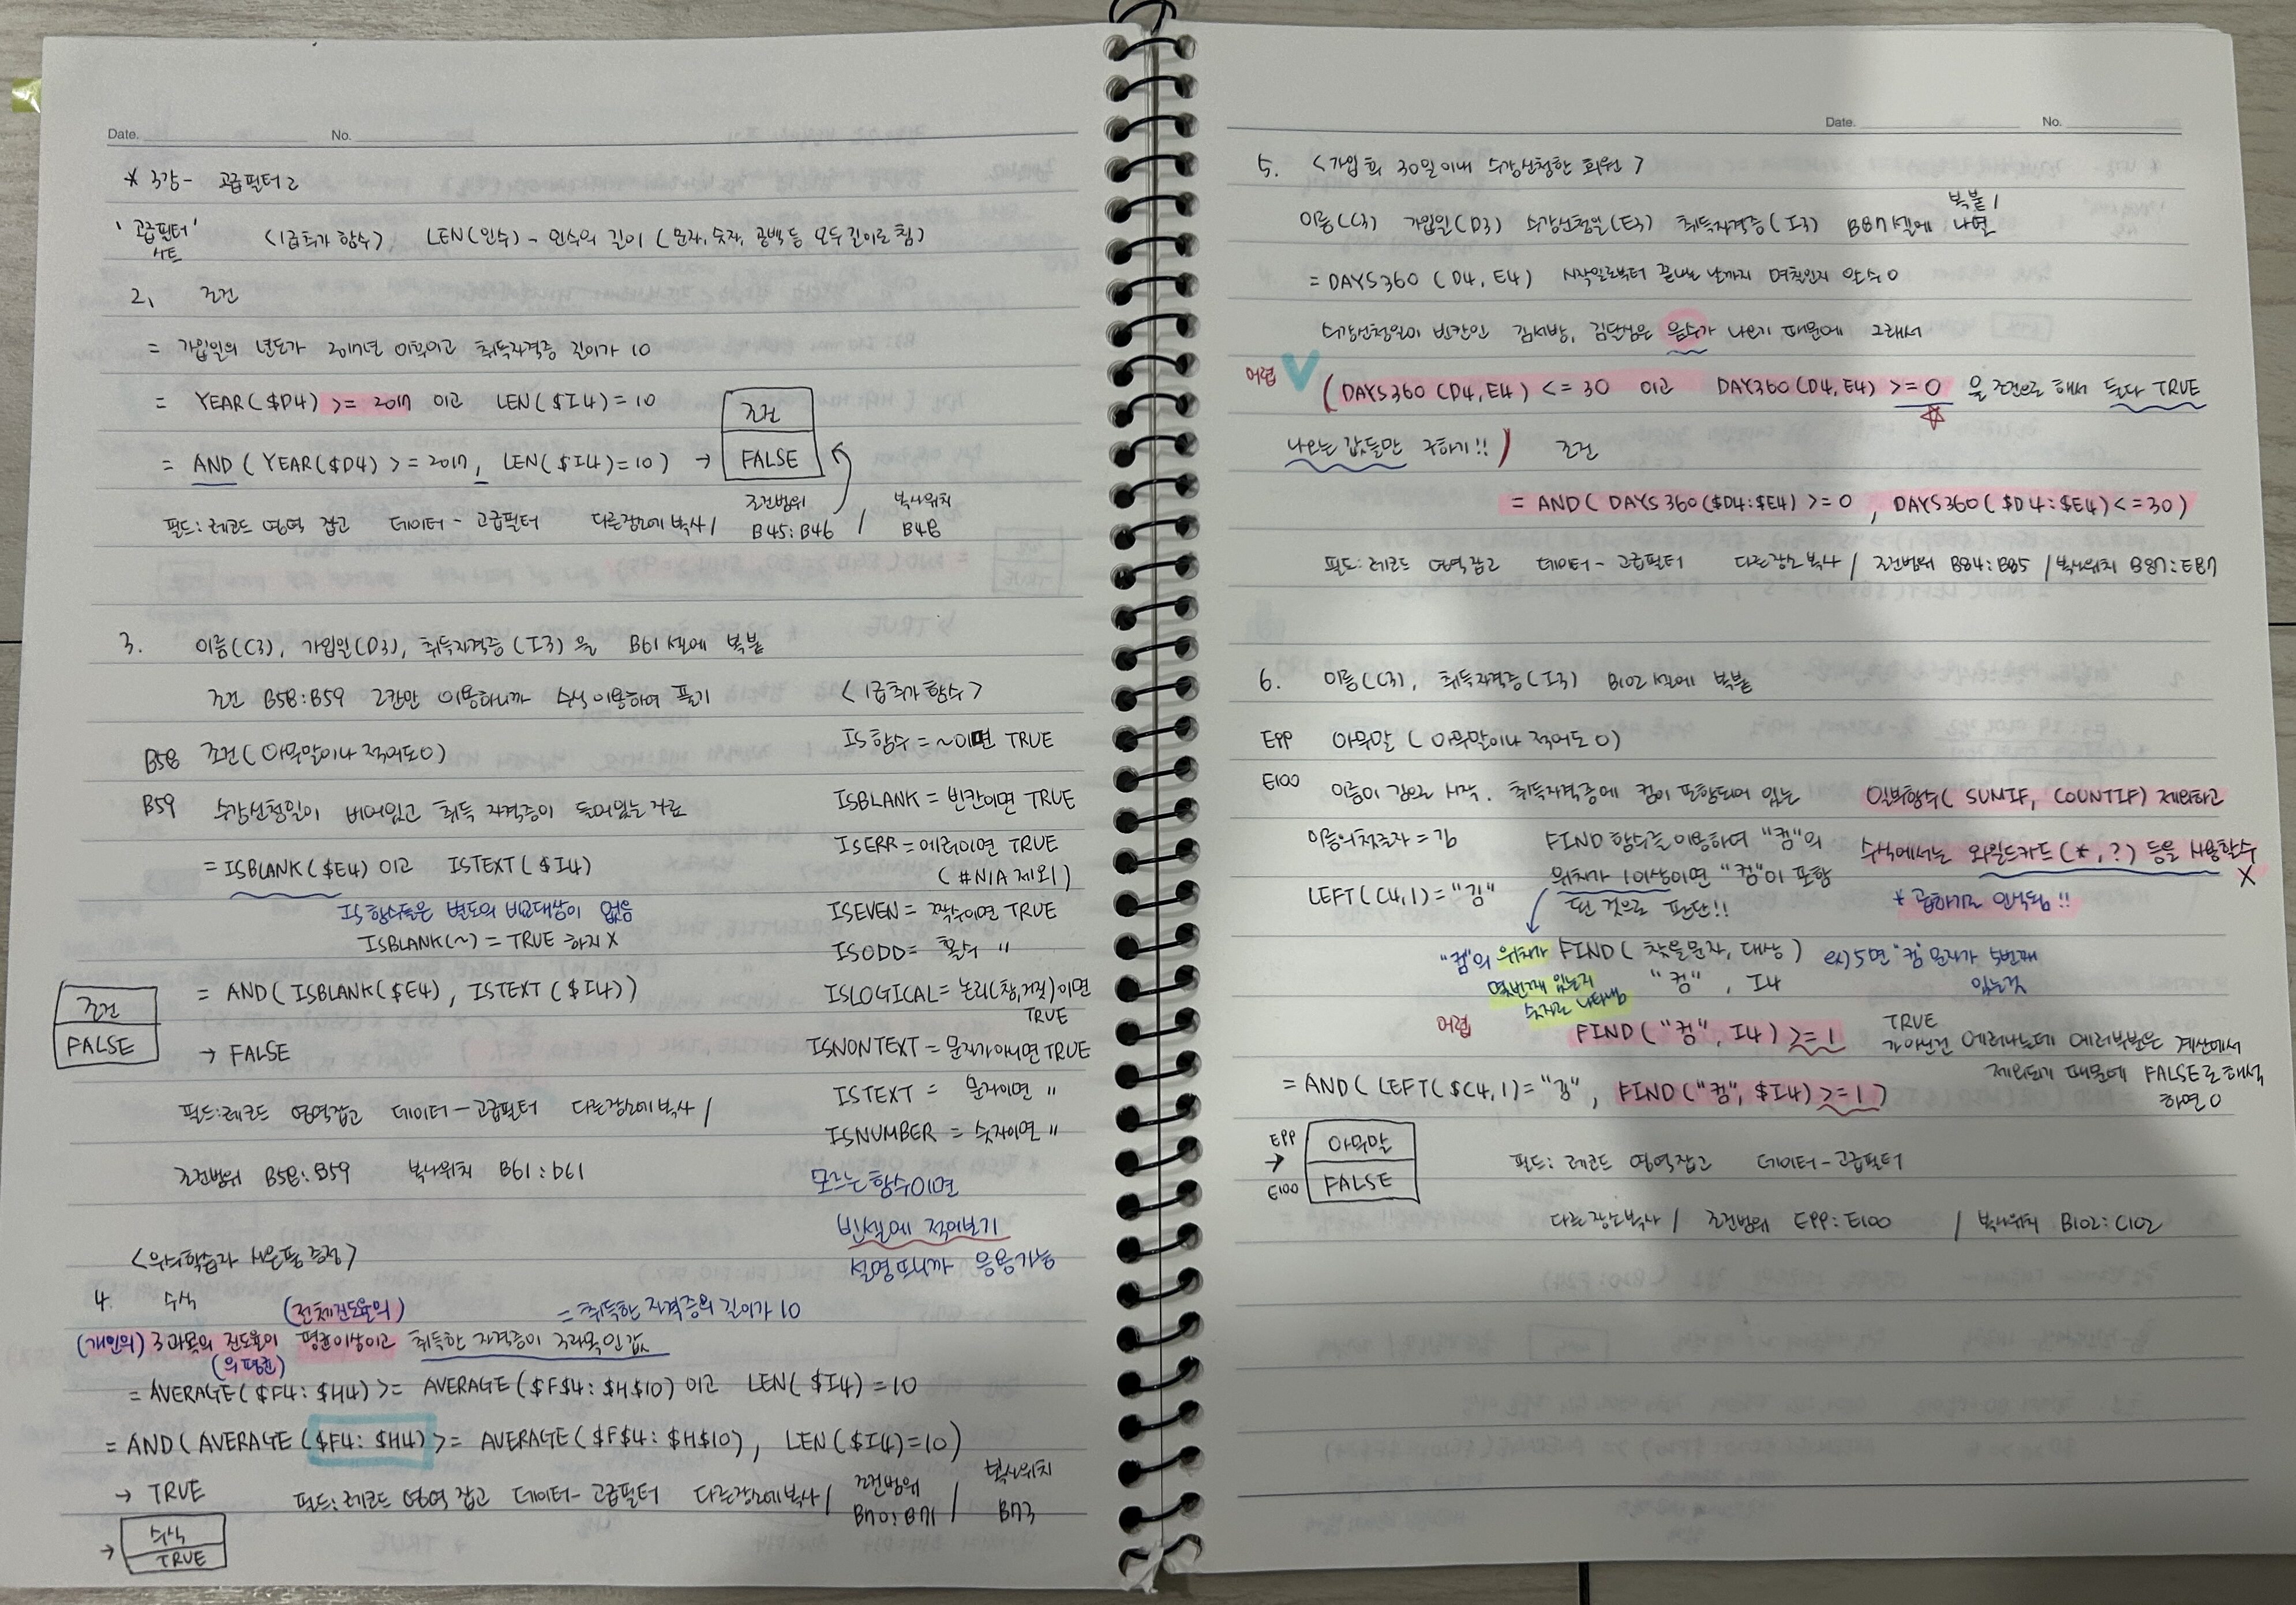 Date. No.
* 3강 - 고급필터2
'고급필터' 시트 <1급추가 함수> LEN(인수) - 인수의 길이 (문자, 숫자, 공백 등 모두 길이로 침)
2. 조건
= 가입일의 년도가 2017년 이후이고 취득자격증 길이가 10
= YEAR($D4) >= 2017 이고 LEN($I4)=10
= AND(YEAR($D4) >= 2017, LEN($I4)=10) →
조건
FALSE
필드:레코드 영역 잡고 데이터 - 고급필터 다른장소에 복사 / 조건범위 B45:B46 / 복사위치 B48
3. 이름(C3), 가입일(D3), 취득자격증(I3)을 B61셀에 복붙
조건 B58:B59 2칸만 이용하니까 수식 이용하여 풀기
B58 조건(아무말이나 적어도 O)
B59 수강신청일이 비어있고 취득 자격증이 들어있는 자료
= ISBLANK($E4) 이고 ISTEXT($I4)
IS함수들은 별도의 비교대상이 없음
ISBLANK(~) = TRUE 하지 X
= AND(ISBLANK($E4), ISTEXT($I4))
조건
FALSE
→ FALSE
필드:레코드 영역잡고 데이터 - 고급필터 다른장소에 복사 /
조건범위 B58:B59 복사위치 B61:D61
<1급추가 함수>
IS함수 = ~이면 TRUE
ISBLANK = 빈칸이면 TRUE
ISERR = 에러이면 TRUE
(#N/A 제외)
ISEVEN = 짝수이면 TRUE
ISODD = 홀수 "
ISLOGICAL = 논리(참,거짓)이면
TRUE
ISNONTEXT = 문자가아니면 TRUE
ISTEXT = 문자이면 "
ISNUMBER = 숫자이면 "
모르는 함수이면
빈셀에 적어보기
설명뜨니까 응용가능
<우수학습자 사은품 증정>
4. 수식 (전체진도율의) = 취득한 자격증의 길이가 10
(개인의) 3과목의 진도율이 평균이상이고 취득한 자격증이 3과목인 값
(의 평균)
= AVERAGE($F4:$H4) >= AVERAGE($F$4:$H$10) 이고 LEN($I4)=10
= AND(AVERAGE($F4:$H4) >= AVERAGE($F$4:$H$10), LEN($I4)=10)
→ TRUE 필드:레코드 영역 잡고 데이터 - 고급필터 다른장소에 복사 / 조건범위 B70:B71 / 복사위치 B73
→
수식
TRUE
Date. No.
5. <가입 후 30일 이내 수강신청한 회원>
이름(C3) 가입일(D3) 수강신청일(E3) 취득자격증(I3) B87셀에 복붙 / 나열
= DAYS360(D4, E4) 시작일로부터 끝나는 날까지 며칠인지 알 수 O
수강신청일이 빈칸인 김서방, 김달님은 음수가 나오기 때문에 그래서
어렵 V (DAYS360(D4,E4) <= 30 이고 DAY360(D4,E4) >= 0 을 조건으로 해서 둘다 TRUE
☆
나오는 값들만 구하기!!) 조건
= AND(DAYS360($D4:$E4) >= 0, DAYS360($D4:$E4) <= 30)
필드:레코드 영역잡고 데이터 - 고급필터 다른장소 복사 / 조건범위 B84:B85 / 복사위치 B87:E87
6. 이름(C3), 취득자격증(I3) B102셀에 복붙
E99 아무말 (아무말이나 적어도 O)
E100 이름이 김으로 시작. 취득자격증에 컴이 포함되어 있는
이름의첫글자 = 김
LEFT(C4,1) = "김"
FIND 함수를 이용하여 "컴"의
위치가 1이상이면 "컴"이 포함
된 것으로 판단!!
일부함수(SUMIF, COUNTIF) 제외하고
수식에서는 와일드카드(*, ?) 등을 사용할수
X
* 곱하기로 인식됨!!
"컴"의 위치가 몇번째 있는지 숫자로 나타냄
FIND(찾을문자, 대상) ex) 5면 "컴"문자가 5번째
"컴", I4 있는것
어렵 FIND("컴", I4) >= 1
TRUE
가 아닌건 에러나는데 에러부분은 계산에서
제외되기 때문에 FALSE로 해석
하면 O
= AND(LEFT($C4,1)="김", FIND("컴",$I4) >= 1)
E99 아무말
→
E100 FALSE
필드:레코드 영역잡고 데이터 - 고급필터
다른장소복사 / 조건범위 E99:E100 / 복사위치 B102:C102